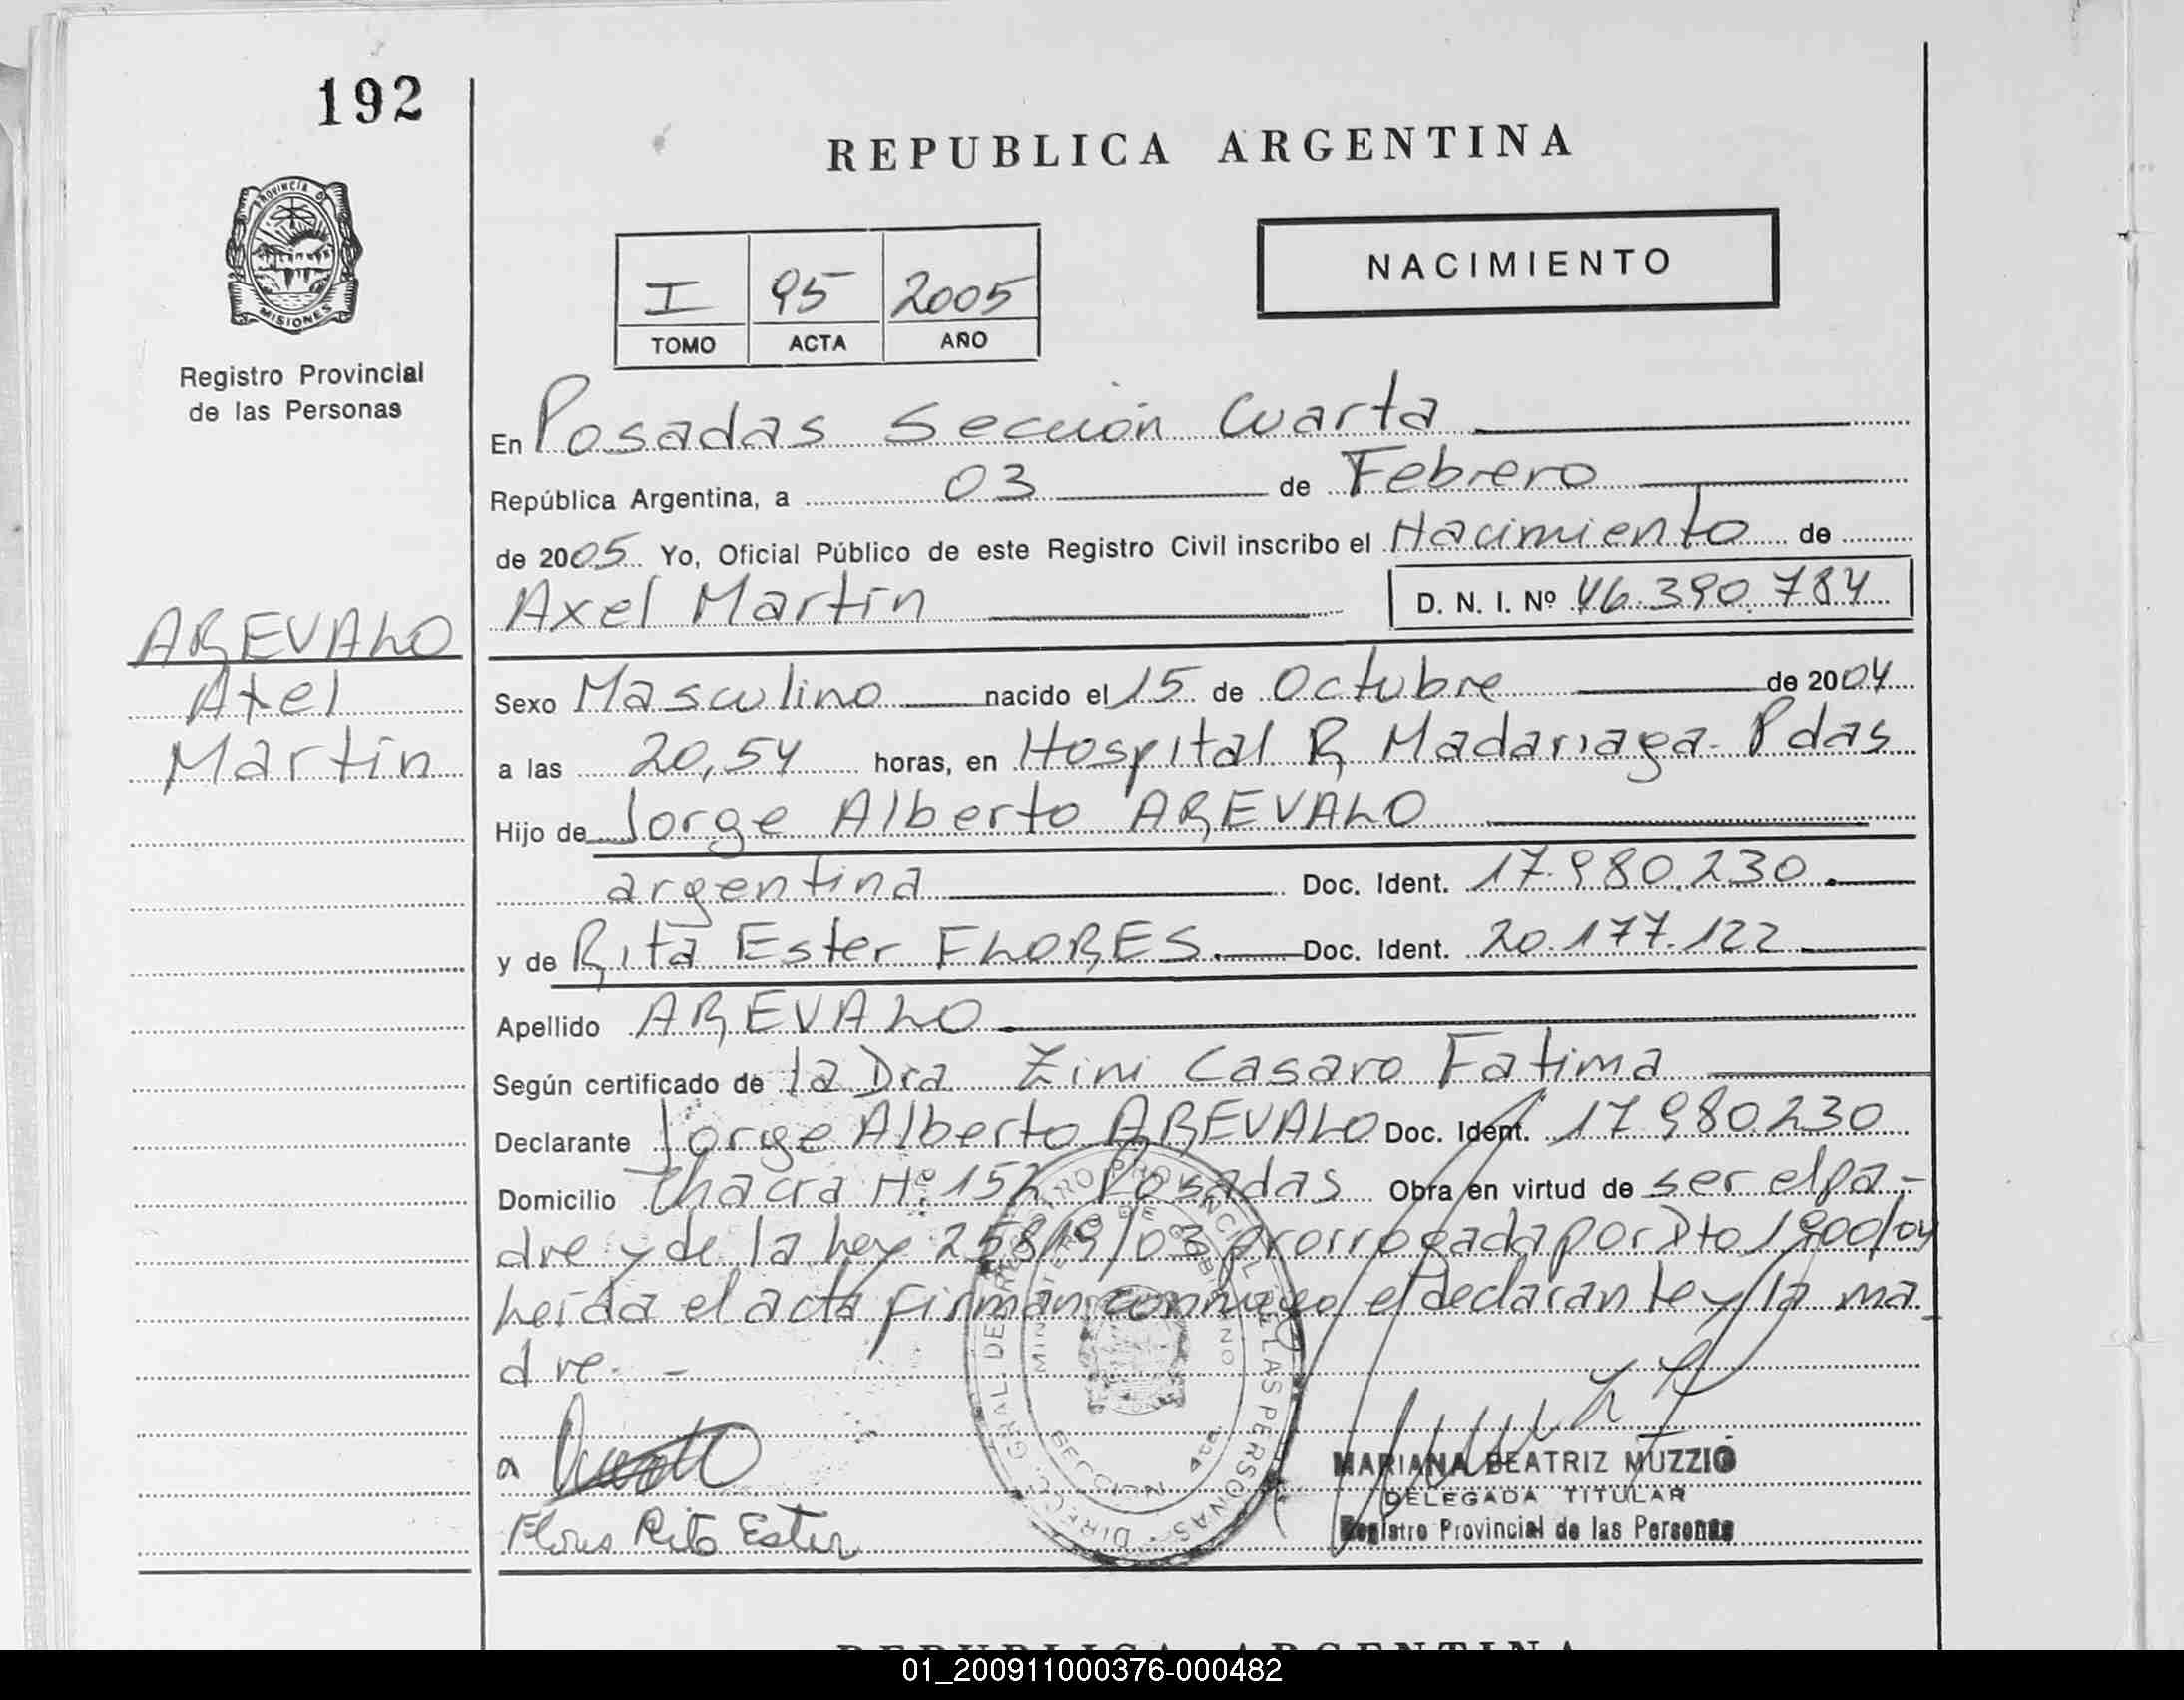 192
REPUBLICA ARGENTINA
PROVINCIA DE
MISIONES
Registro Provincial
de las Personas
I 95 2005
TOMO ACTA AÑO
NACIMIENTO
En Posadas Sección Cuarta
República Argentina, a 03 de Febrero
de 2005 Yo, Oficial Público de este Registro Civil inscribo el Nacimiento de
Axel Martín D. N. I. Nº 46.390.784
AREVALO
Axel
Martín
Sexo Masculino nacido el 15 de Octubre de 2004
a las 20,54 horas, en Hospital R Madariaga - Pdas
Hijo de Jorge Alberto AREVALO
argentina Doc. Ident. 17.980.230.
y de Rita Ester FLORES. Doc. Ident. 20.177.122
Apellido AREVALO
Según certificado de la Dra Zini Casaro Fatima
Declarante Jorge Alberto AREVALO Doc. Ident. 17 980.230
Domicilio Chacra Nº 152 Posadas Obra en virtud de ser el pa-
dre y de la Ley 25819/03 prorrogada por Dto 1900/04
Leída el acta firman conmigo el declarante y la ma-
dre. -
Flores Rita Ester
DIREC. GRAL. DE REGISTRO PROVINCIAL DE LAS PERSONAS
MINISTERIO DE GOBIERNO
SECCION 4ta
MARIANA BEATRIZ MUZZIO
DELEGADA TITULAR
Registro Provincial de las Personas
REPUBLICA ARGENTINA
01_200911000376-000482